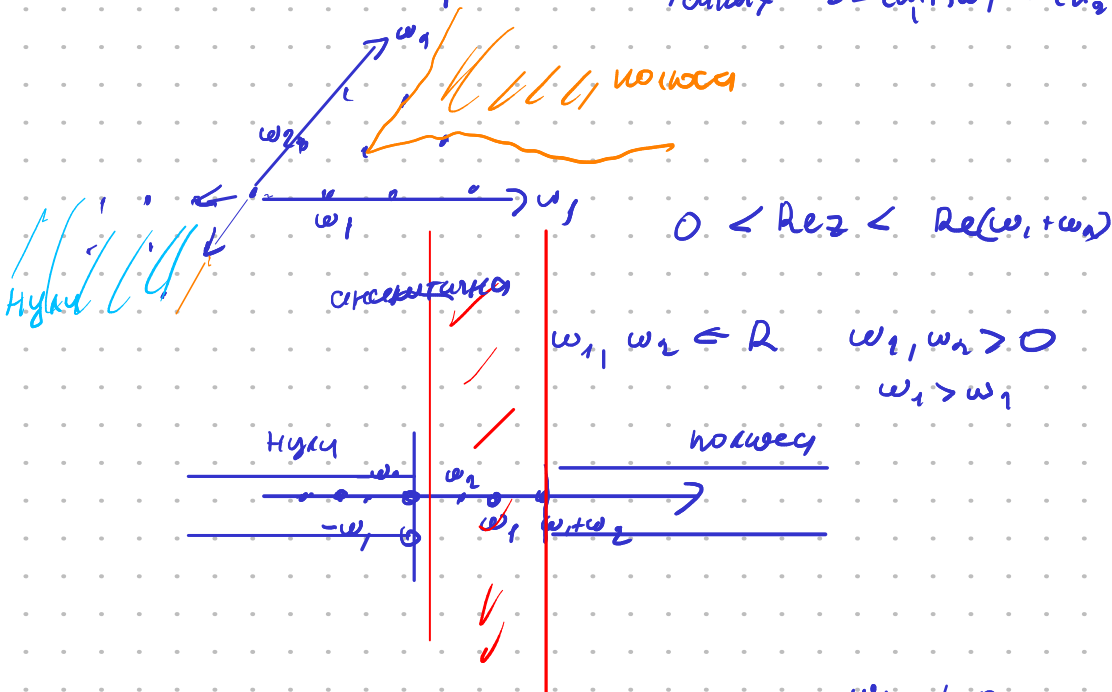 ω₁
полюса
ω₂
ω₁
ω₁
0 < Re z < Re(ω₁+ω₂)
Нули
аналитична
ω₁, ω₂ ∈ R ω₁, ω₂ > 0
ω₁ > ω₁
Нули
полюса
ω₂
-ω₁
ω₁
ω₁+ω₂